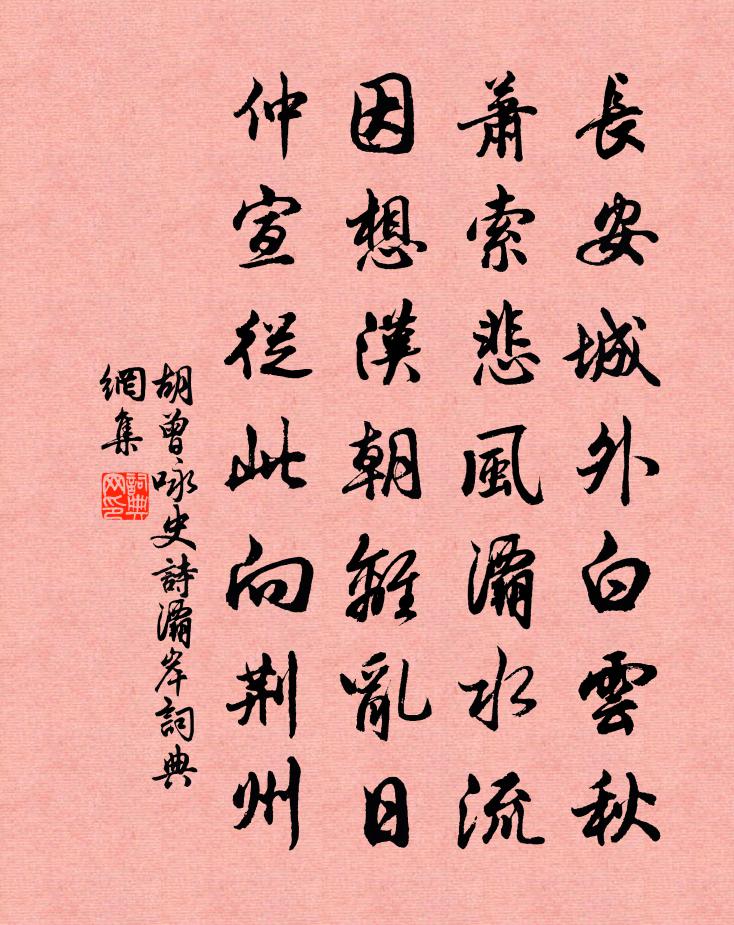 長安城外白雲秋
蕭索悲風灞水流
因想漢朝離亂日
仲宣從此向荆州
胡曾咏史詩灞岸詞典
網集
詞典
网印